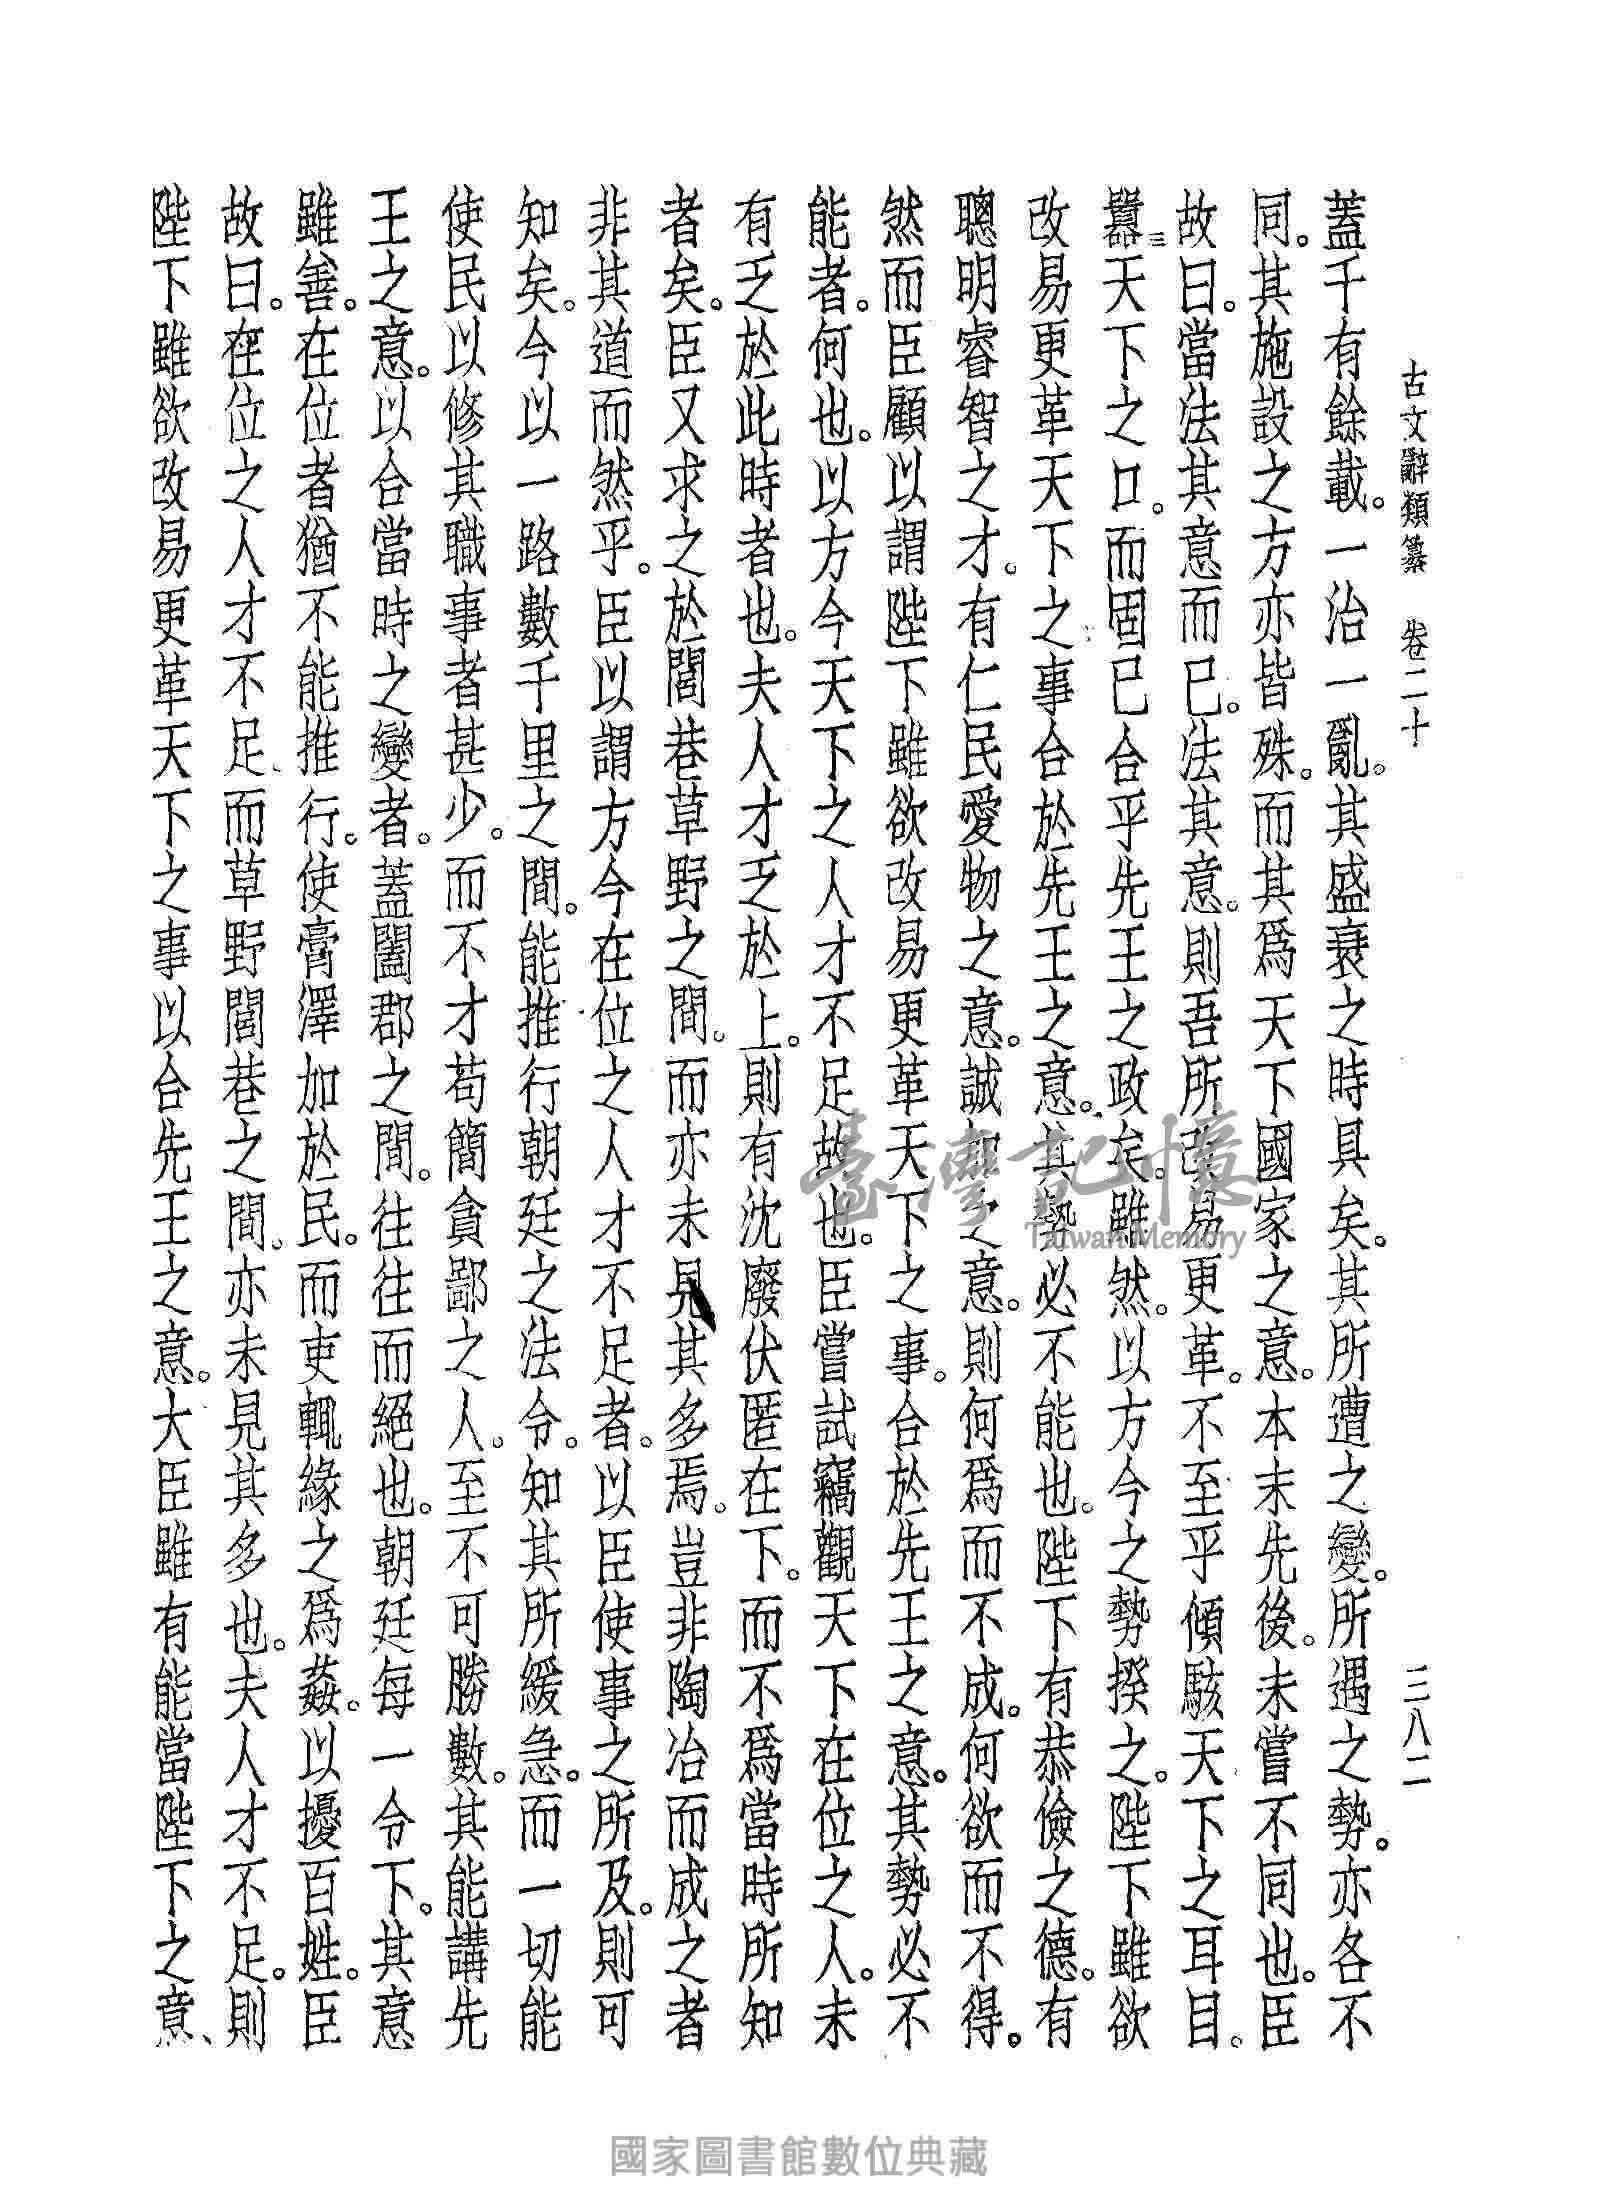 古文辭類纂　卷二十　三八二
蓋千有餘載。一治一亂。其盛衰之時具矣。其所遭之變。所遇之勢。亦各不
同。其施設之方亦皆殊。而其爲天下國家之意。本末先後。未嘗不同也。臣
故曰。當法其意而已。法其意。則吾所改易更革。不至乎傾駭天下之耳目。
囂天下之口。而固已合乎先王之政矣。雖然。以方今之勢揆之。陛下雖欲
改易更革天下之事合於先王之意。其勢必不能也。陛下有恭儉之德。有
聰明睿智之才。有仁民愛物之意。誠加之意。則何爲而不成。何欲而不得。
然而臣顧以謂陛下雖欲改易更革天下之事。合於先王之意。其勢必不
能者。何也。以方今天下之人才不足故也。臣嘗試竊觀天下在位之人。未
有乏於此時者也。夫人才乏於上。則有沈廢伏匿在下。而不爲當時所知
者矣。臣又求之於閭巷草野之間。而亦未見其多焉。豈非陶冶而成之者
非其道而然乎。臣以謂方今在位之人才不足者。以臣使事之所及。則可
知矣。今以一路數千里之間。能推行朝廷之法令。知其所緩急。而一切能
使民以修其職事者甚少。而不才苟簡貪鄙之人。至不可勝數。其能講先
王之意。以合當時之變者。蓋闔郡之間。往往而絕也。朝廷每一令下。其意
雖善。在位者猶不能推行。使膏澤加於民。而吏輒緣之爲姦。以擾百姓。臣
故曰。在位之人才不足、而草野閭巷之間。亦未見其多也。夫人才不足。則
陛下雖欲改易更革天下之事以合先王之意。大臣雖有能當陛下之意、
臺灣記憶
Taiwan Memory
國家圖書館數位典藏